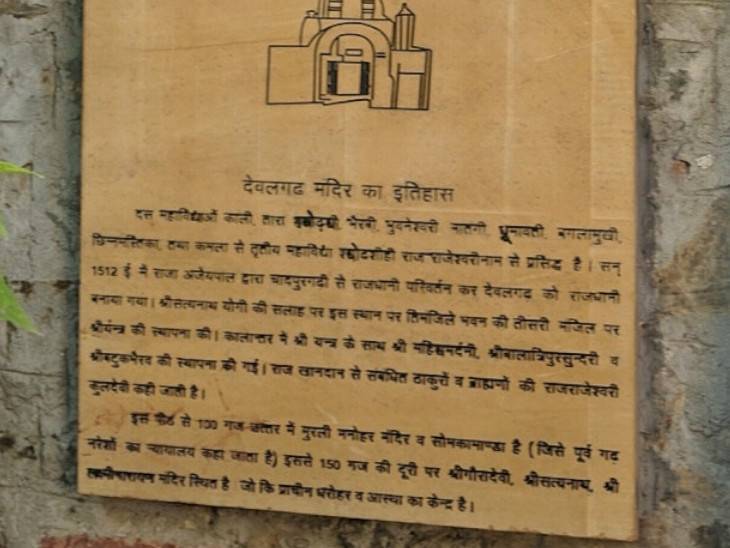 देवलगढ मंदिर का इतिहास
दस महाविद्याओं काली, तारा भैरवी, भुवनेश्वरी मातगी, धूमावती, बगलामुखी,
छिन्नमस्तिका, तथा कमला से तृतीय महाविद्या राज राजेश्वरीनाम से प्रसिद्ध है। सन्
1512 ई में राजा अजेयपाल द्वारा चादपुरगढी से राजधानी परिवर्तन कर देवलगढ को राजधानी
बनाया गया। श्रीसत्यनाथ योगी की सलाह पर इस स्थान पर तिमंजिले भवन की तीसरी मंजिल पर
श्रीयंन्त्र की स्थापना की। कालान्तर में श्री यन्त्र के साथ श्री श्रीबालात्रिपुरसुन्दरी व
श्रीबटुकभैरव की स्थापना की गई। राज खानदान से संबंधित ठाकुरों व ब्राह्मणों की राजराजेश्वरी
कुलदेवी कही जाती है।
इस पीठ से 100 गज उत्तर में मुरली मनोहर मंदिर व सोमकामाण्डा है (जिसे पूर्व गढ
नरेशों का न्यायालय कहा जाता है) इससे 150 गज की दूरी पर श्रीगौरादेवी, श्रीसत्यनाथ, श्री
लक्ष्मीनारायण मंदिर स्थित है जो कि प्राचीन धरोहर व आस्था का केन्द्र है।